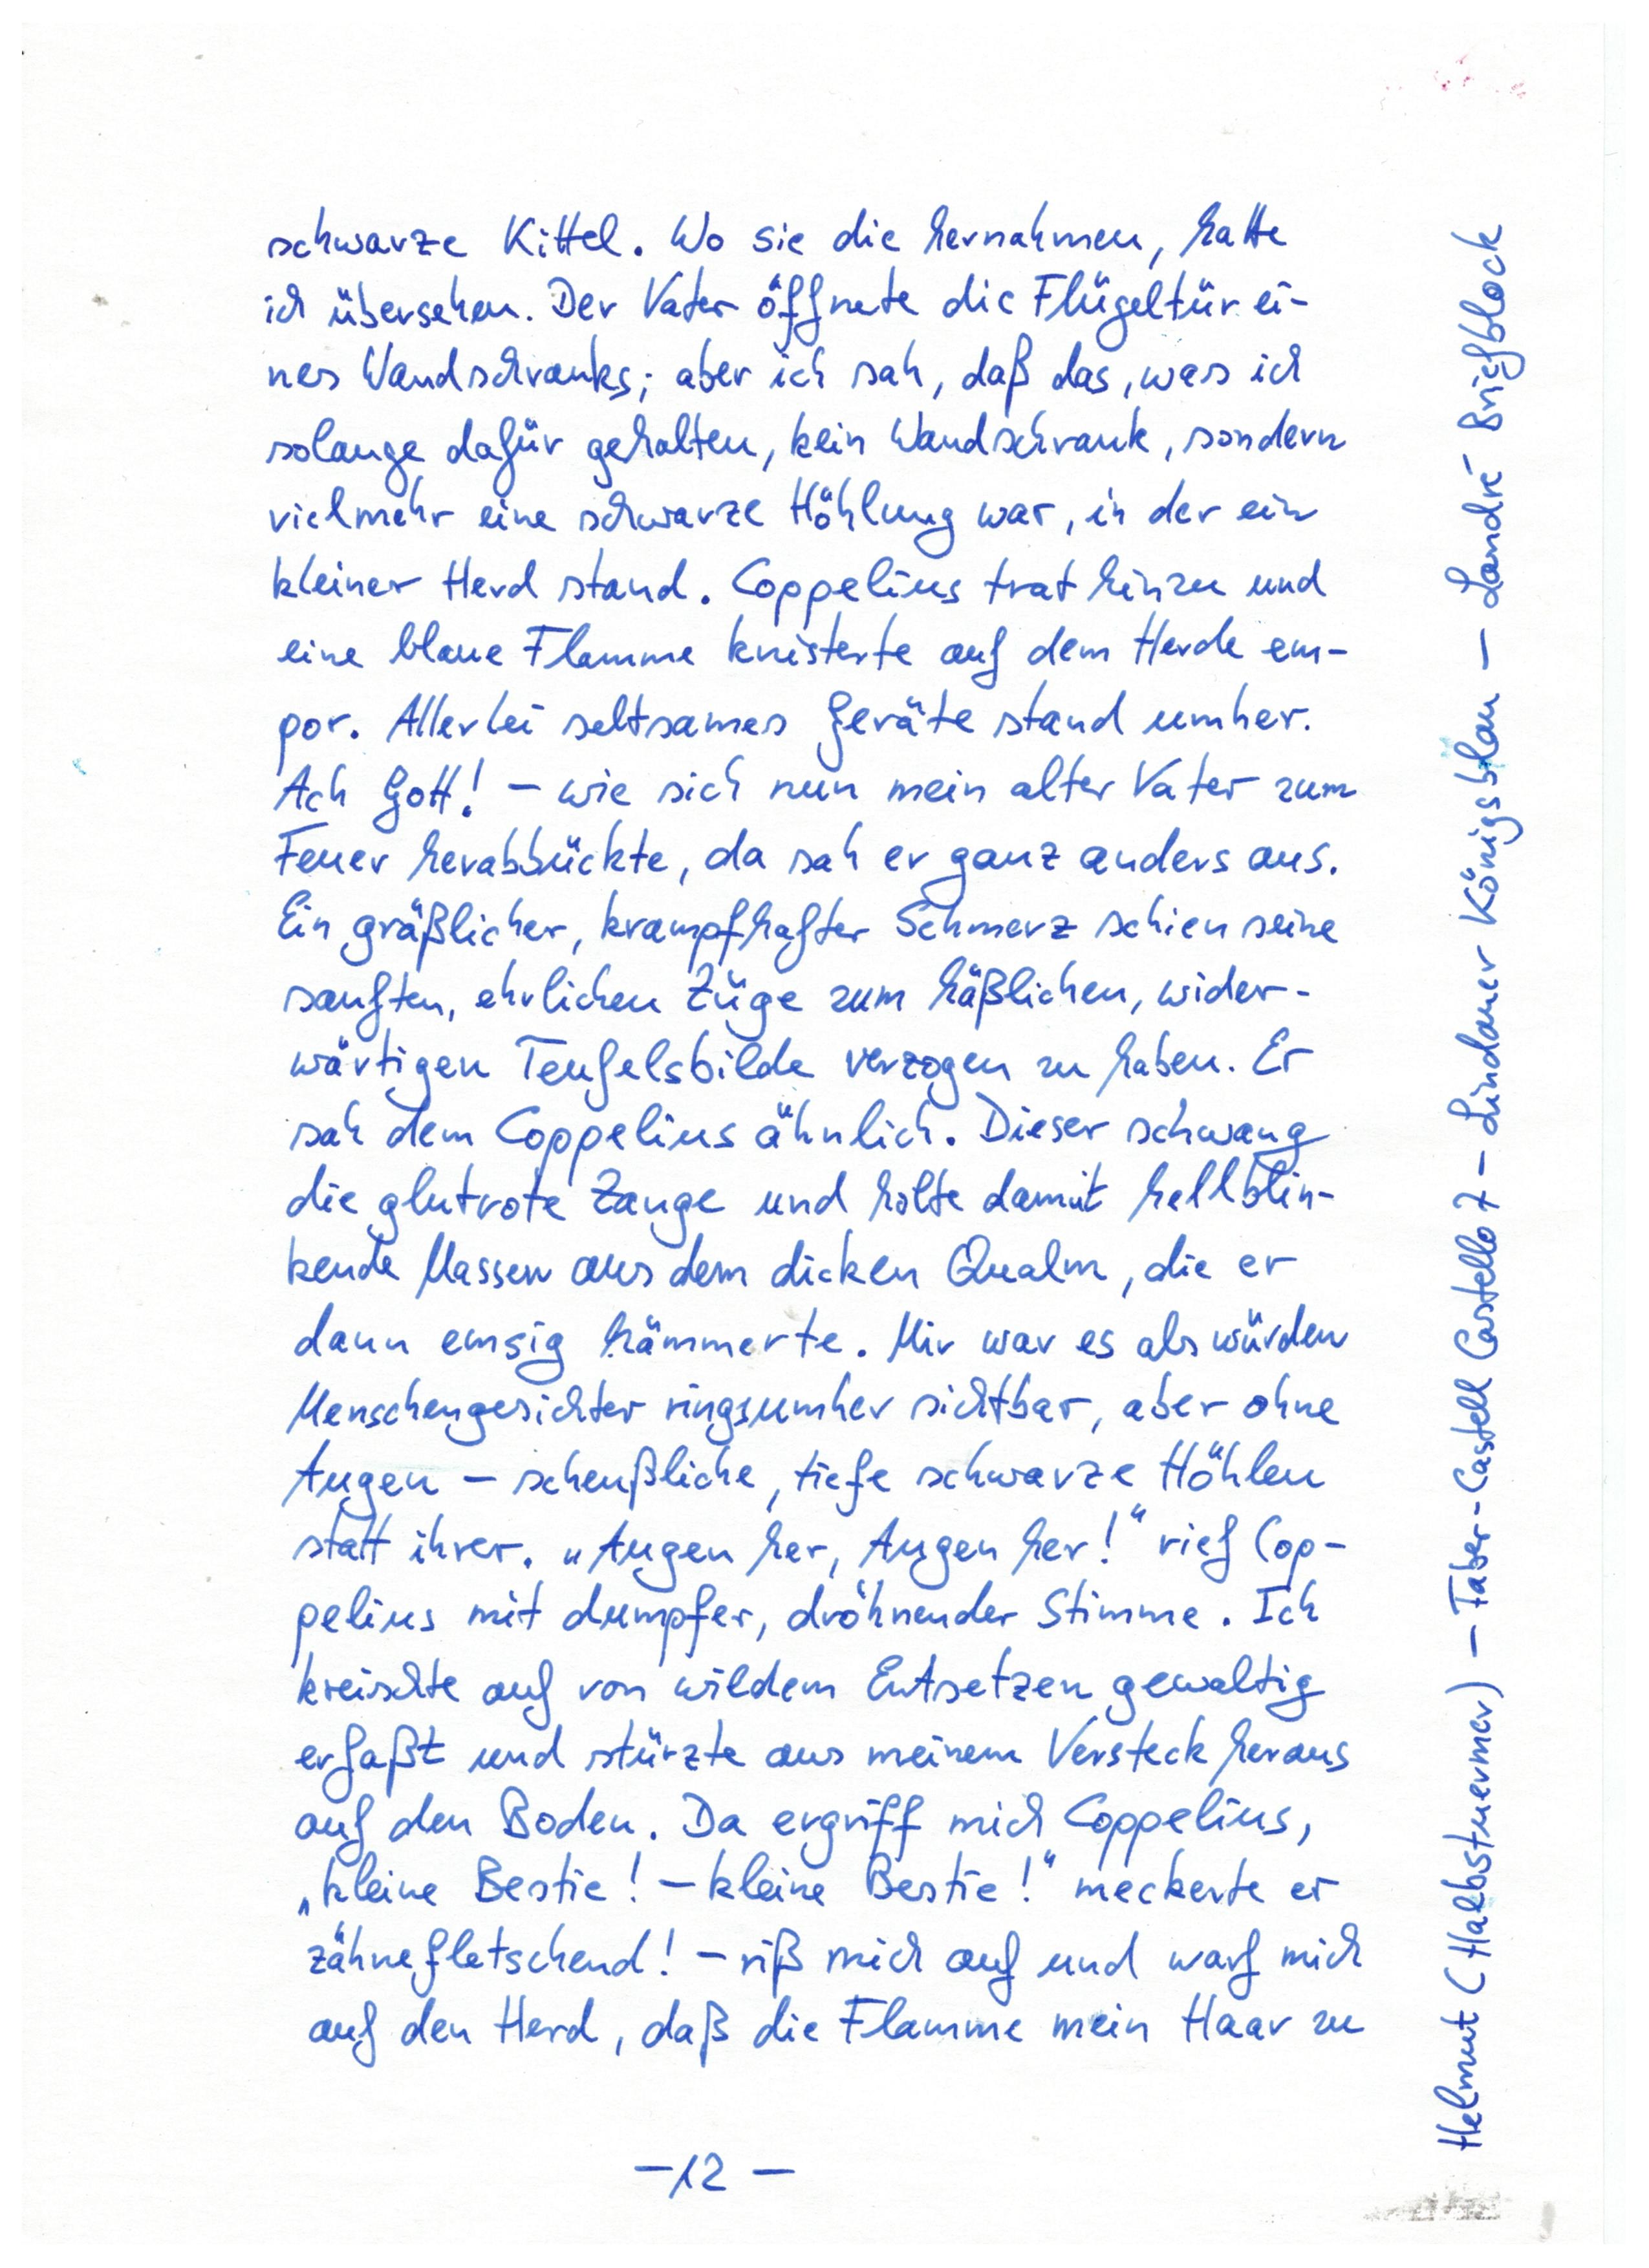 schwarze Kittel. Wo sie die hernahmen, hatte
ich übersehen. Der Vater öffnete die Flügeltür ei-
nes Wandschranks; aber ich sah, daß das, was ich
solange dafür gehalten, kein Wandschrank, sondern
vielmehr eine schwarze Höhlung war, in der ein
kleiner Herd stand. Coppelius trat hinzu und
eine blaue Flamme knisterte auf dem Herde em-
por. Allerlei seltsames Geräte stand umher.
Ach Gott! – wie sich nun mein alter Vater zum
Feuer herabbückte, da sah er ganz anders aus.
Ein gräßlicher, krampfhafter Schmerz schien seine
sanften, ehrlichen Züge zum häßlichen, wider-
wärtigen Teufelsbilde verzogen zu haben. Er
sah dem Coppelius ähnlich. Dieser schwang
die glutrote Zange und holte damit hellblin-
kende Massen aus dem dicken Qualm, die er
dann emsig hämmerte. Mir war es als würden
Menschengesichter ringsumher sichtbar, aber ohne
Augen – scheußliche, tiefe schwarze Höhlen
statt ihrer. „Augen her, Augen her!“ rief Cop-
pelius mit dumpfer, dröhnender Stimme. Ich
kreischte auf von wildem Entsetzen gewaltig
erfaßt und stürzte aus meinem Versteck heraus
auf den Boden. Da ergriff mich Coppelius,
„kleine Bestie! – kleine Bestie!“ meckerte er
zähnefletschend! – riß mich auf und warf mich
auf den Herd, daß die Flamme mein Haar zu
– 12 –
Helmut (Halbstuermer) – Faber-Castell Castello 7 – Lindauer Königsblau – Landré Briefblock